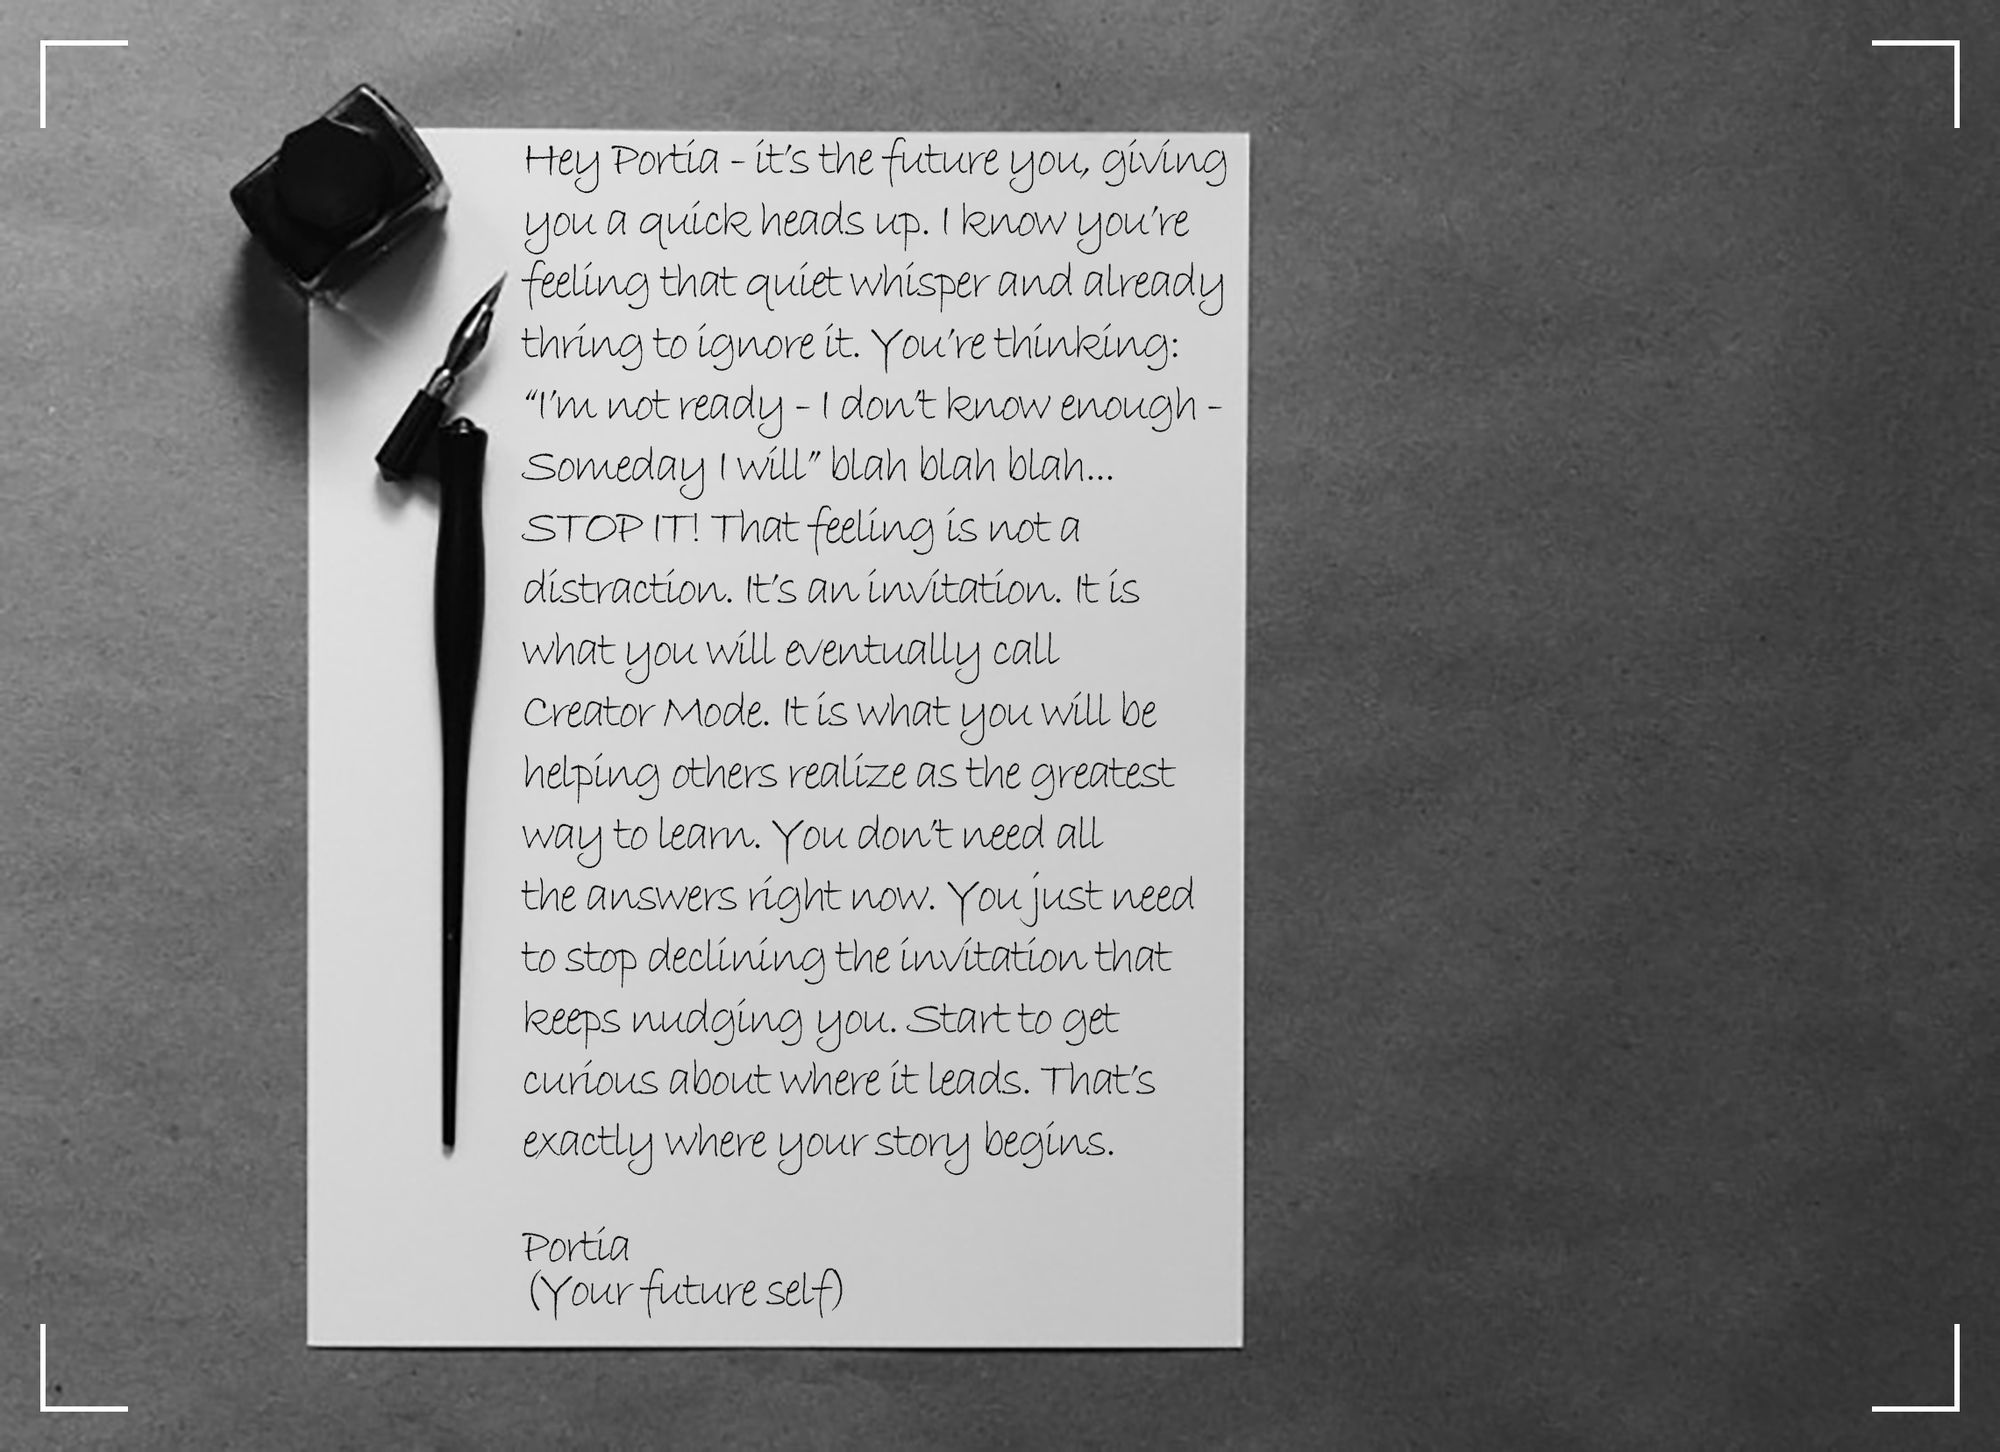 Hey Portia - it's the future you, giving
you a quick heads up. I know you're
feeling that quiet whisper and already
thring to ignore it. You're thinking:
“I'm not ready - I don't know enough -
Someday I will” blah blah blah...
STOP IT! That feeling is not a
distraction. It's an invitation. It is
what you will eventually call
Creator Mode. It is what you will be
helping others realize as the greatest
way to learn. You don't need all
the answers right now. You just need
to stop declining the invitation that
keeps nudging you. Start to get
curious about where it leads. That's
exactly where your story begins.
Portia
(Your future self)